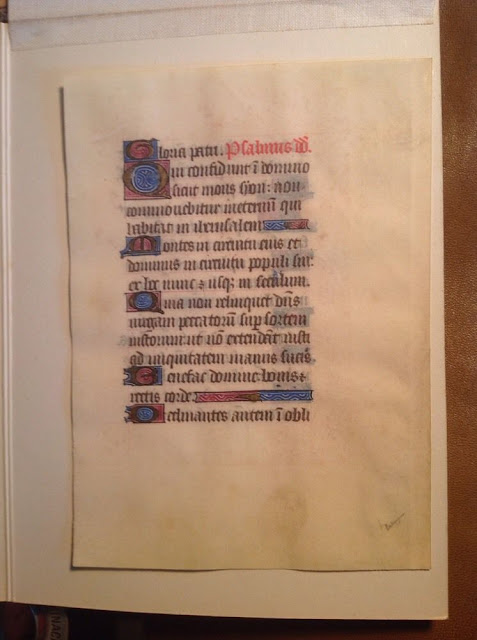 Gloria patri. Psalmus dd.
Qui confidunt ī domino
sicut mons syon: non
commovebitur ineternū qui
habitat in iherusalem
Montes in circuitu eius et
dominus in circuitu populi sui:
ex hoc nunc & usqȝ in seculum.
Quia non relinquet dn̄s
virgam peccatorū sup̄ sortem
iustorum: ut nō extendāt iusti
ad iniquitatem manus suas
Benefac domine: bonis &
rectis corde.
Declinantes autem ī obli